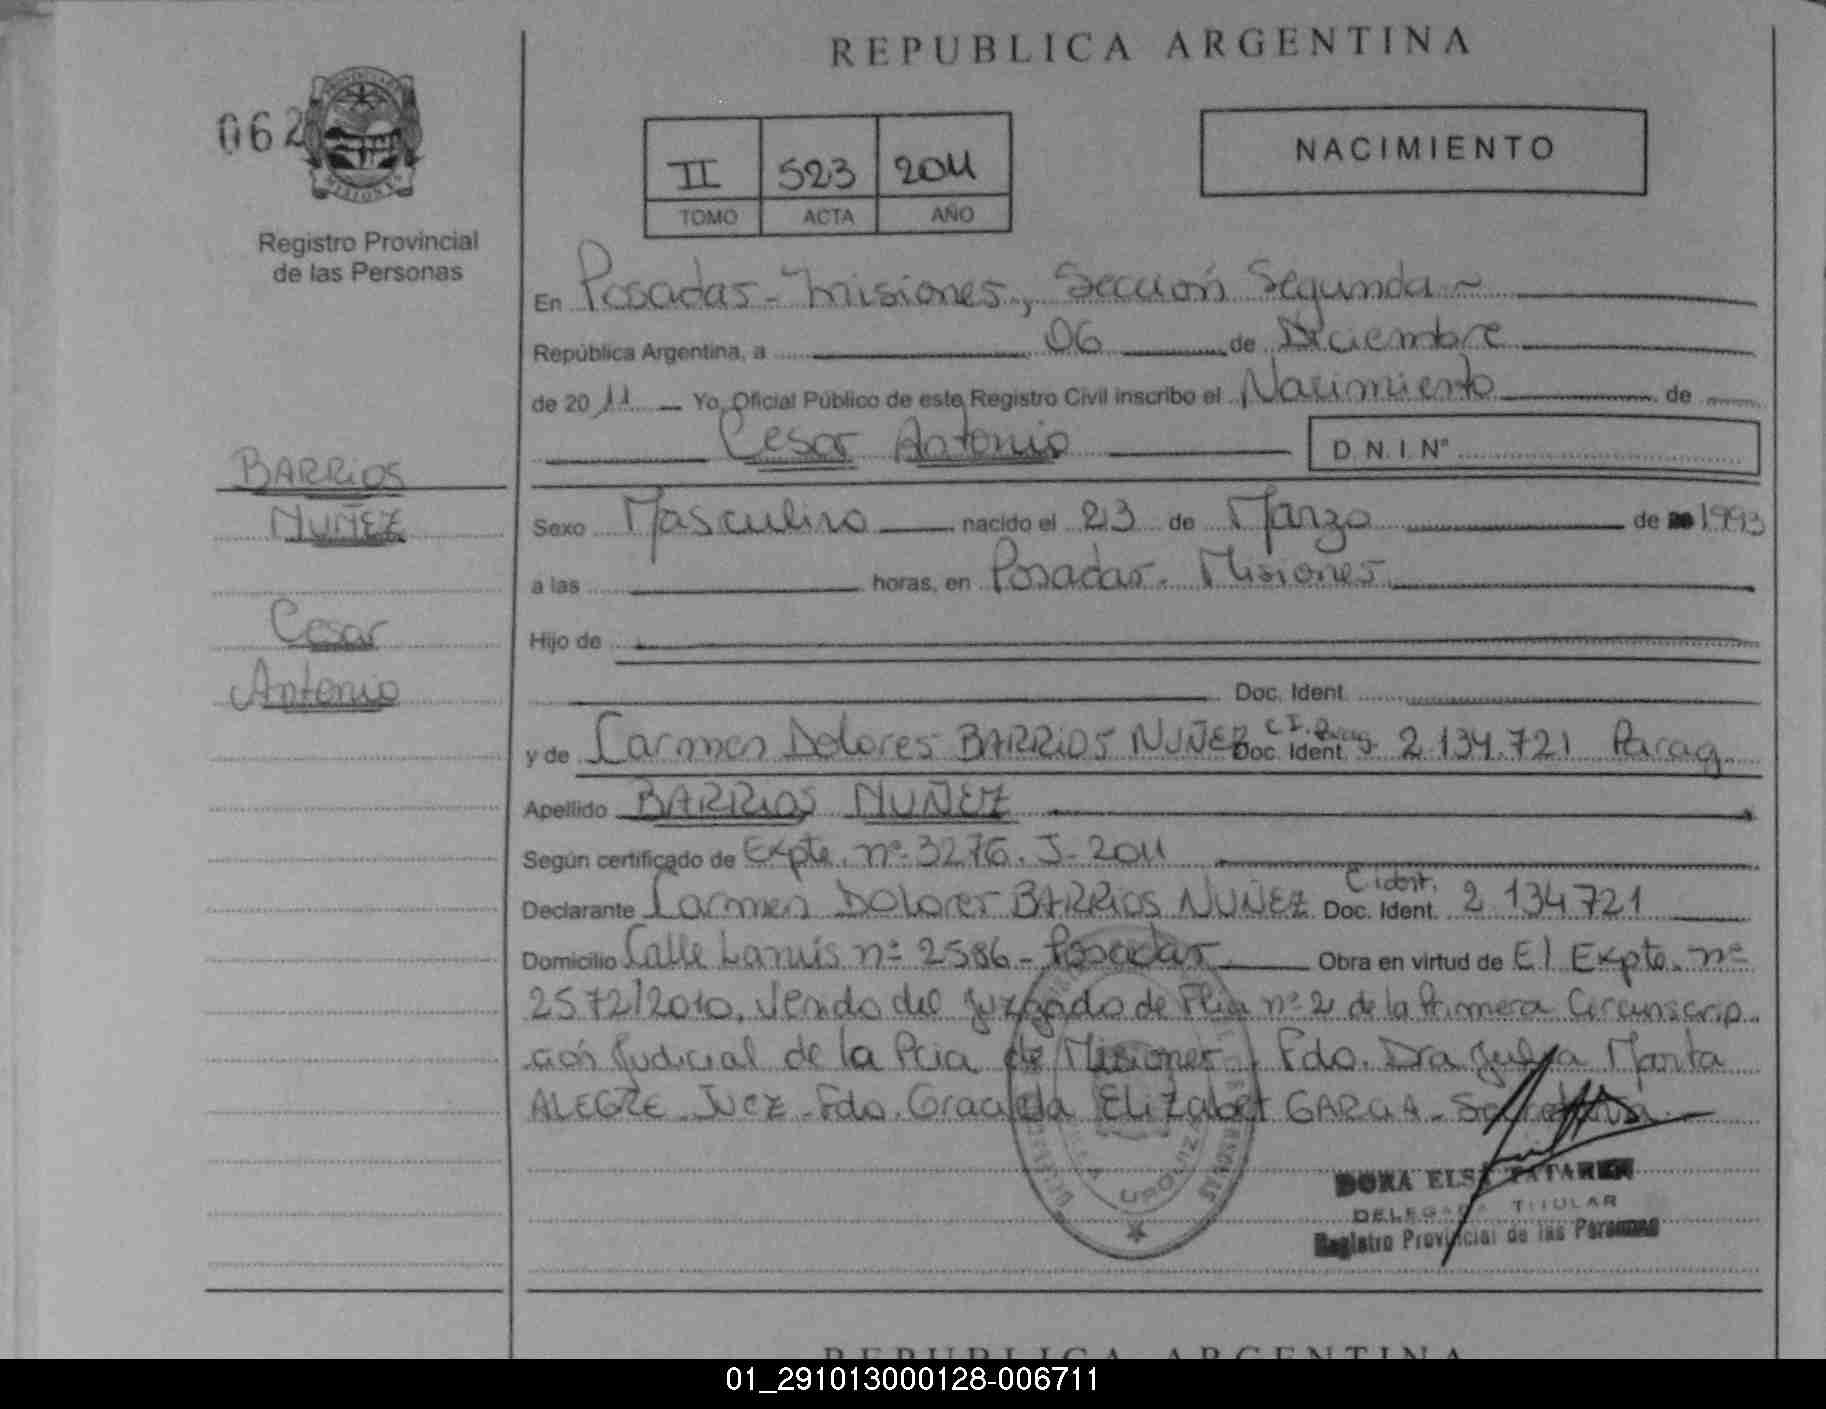 REPUBLICA ARGENTINA
062
NACIMIENTO
II 523 2011
TOMO ACTA AÑO
Registro Provincial
de las Personas
En Posadas - Misiones, Sección Segunda
República Argentina, a 06 de Diciembre
de 2011 Yo, Oficial Público de este Registro Civil inscribo el Nacimiento de
Cesar Antonio D.N.I. Nº
BARRIOS
NUÑEZ
Cesar
Antonio
Sexo Masculino nacido el 23 de Marzo de 1993
a las horas, en Posadas. Misiones
Hijo de
Doc. Ident.
y de Carmen Dolores BARRIOS NUÑEZ Doc. Ident. C.I. Parag. 2.134.721 Parag.
Apellido BARRIOS NUÑEZ
Según certificado de Expte. nº 3276. J- 2011
Declarante Carmen Dolores BARRIOS NUÑEZ Doc. Ident. C. ident. 2 134721
Domicilio Calle Lanús nº 2586 - Posadas Obra en virtud de El Expte. nº
2572/2010, Venido del Juzgado de Flia nº 2 de la Primera Circunscrip
ción Judicial de la Pcia de Misiones, Fdo. Dra Julia Marta
ALEGRE - Juez - Fdo. Graciela Elizabet GARCIA - Secretaria
DORA ELSA
DELEGADA TITULAR
Registro Provincial de las Personas
REPUBLICA ARGENTINA
01_291013000128-006711